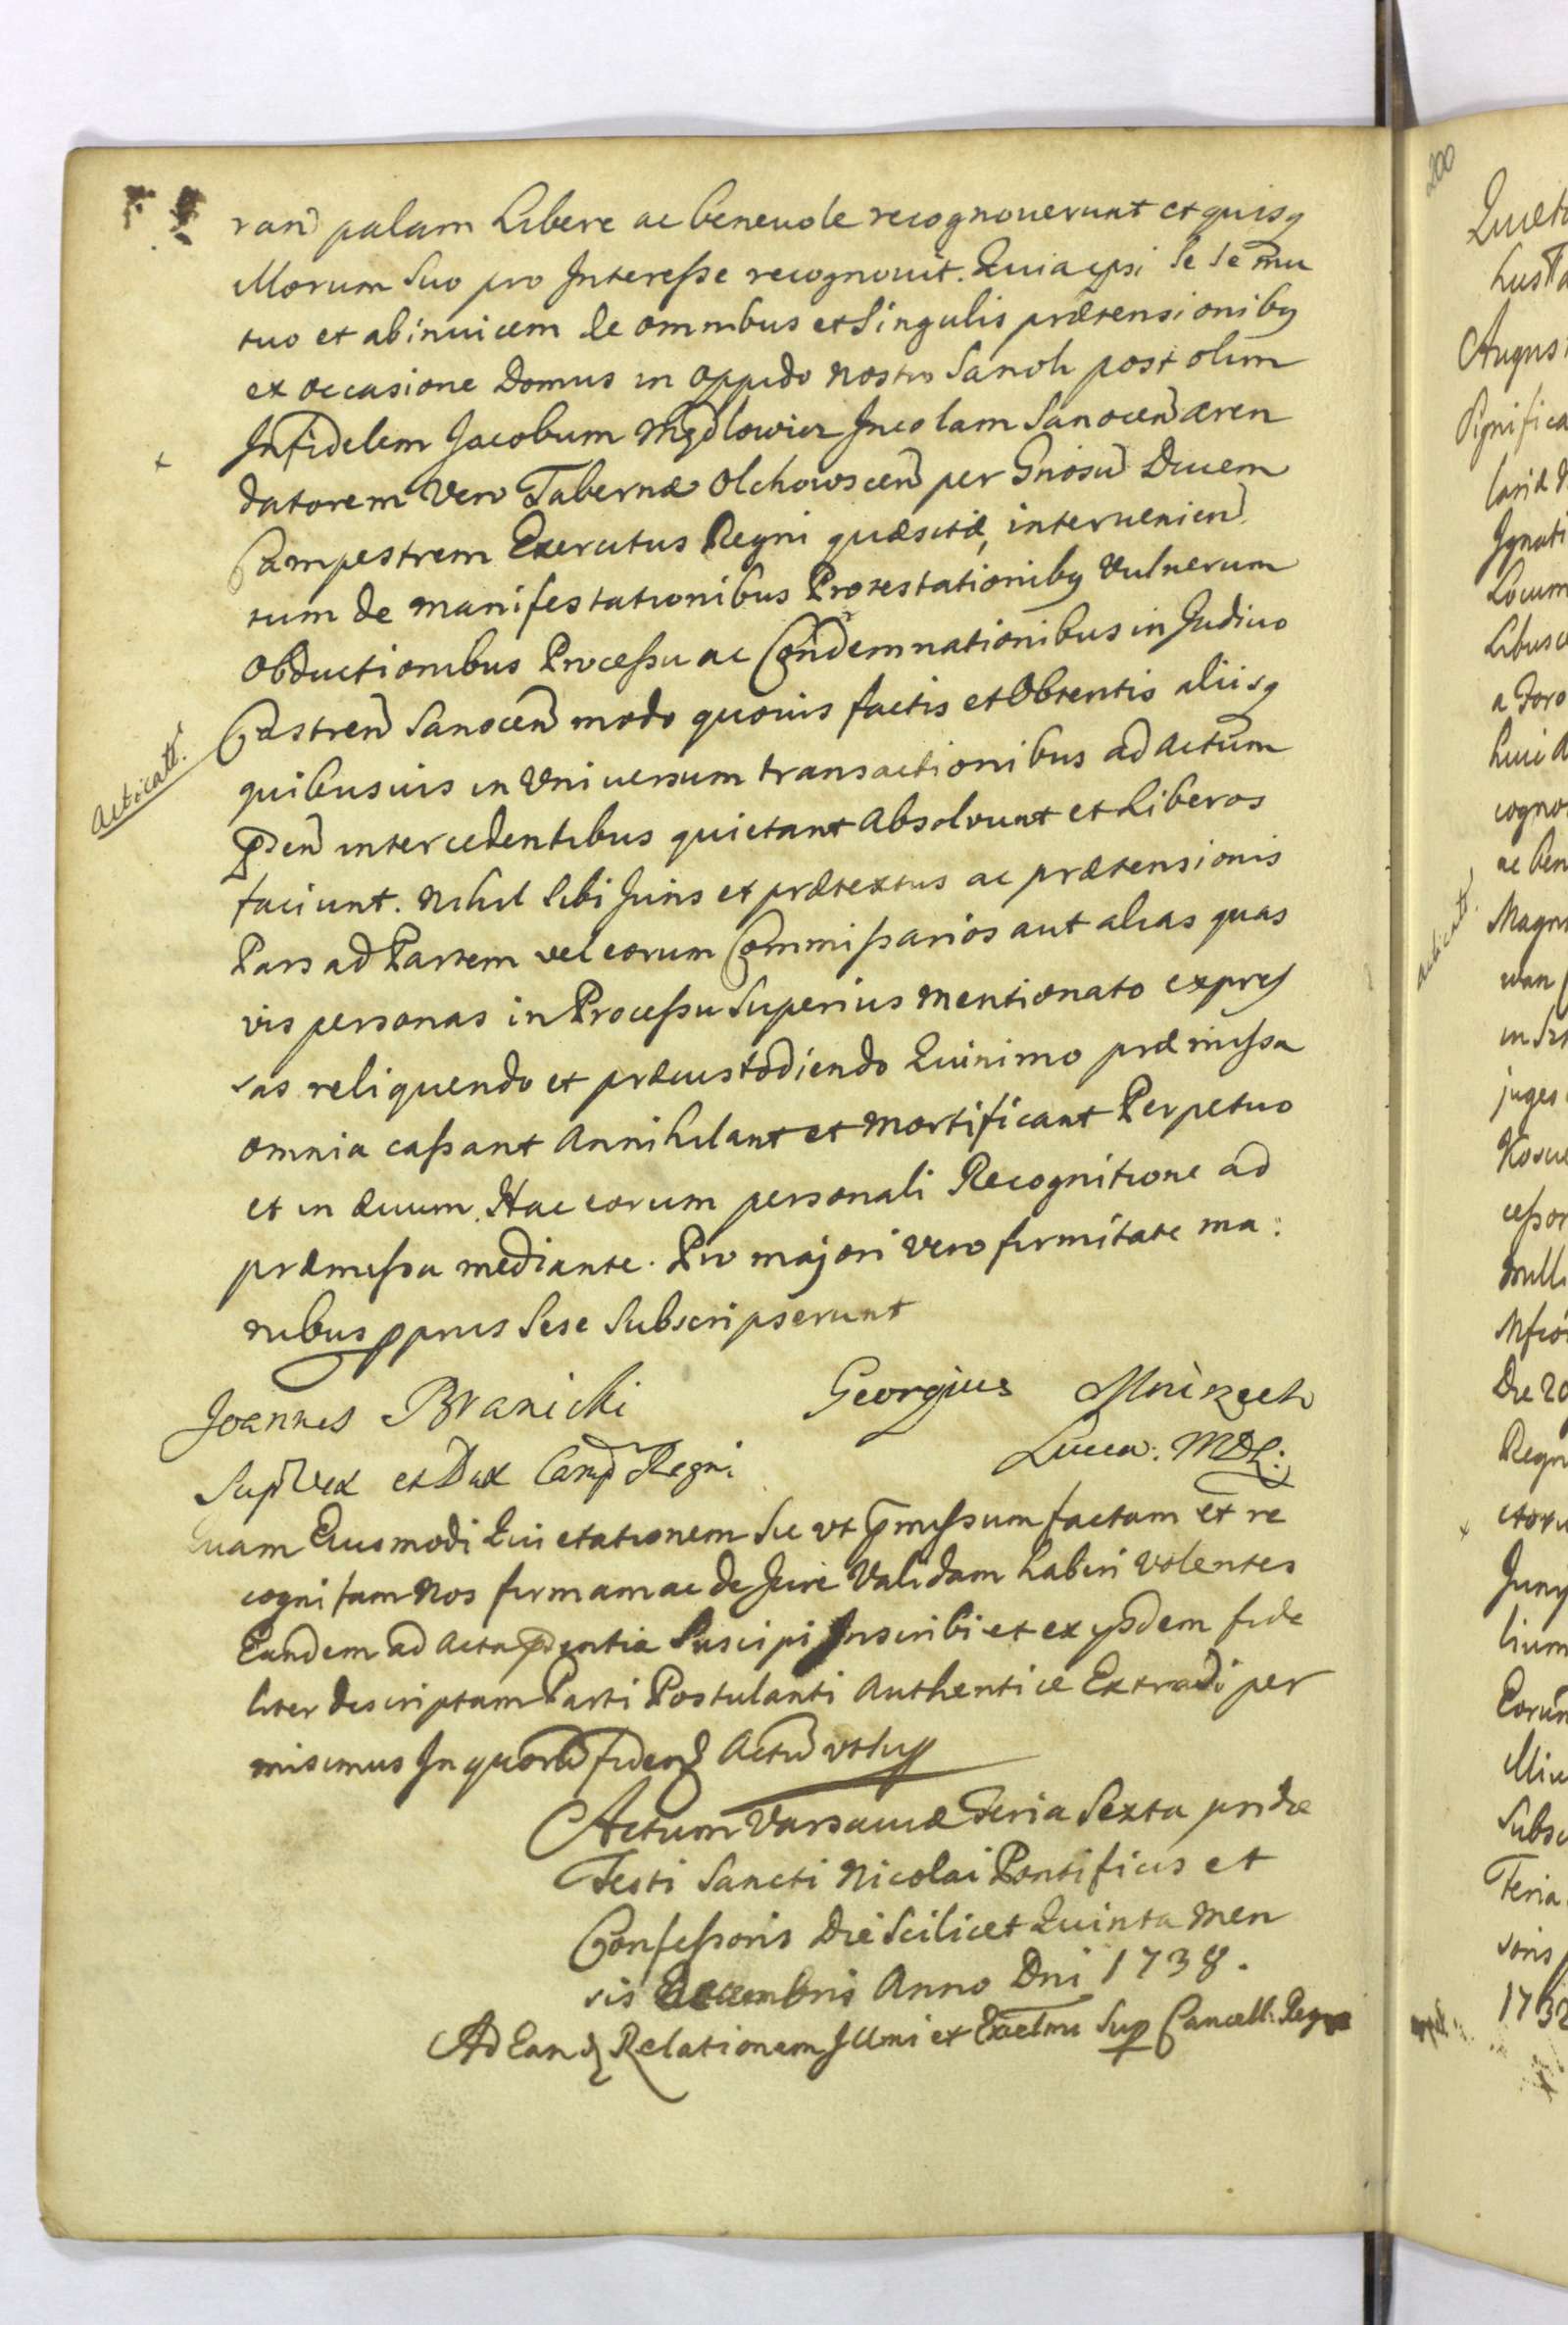 ran palam Libere ac beneuole recognouerunt et quisq
Illorum Suo pro Interesse recognouit. Quia ipsi Se Se mu
tuo et abinuicem de omnibus et Singulis prætensionibq
ex occasione Domus in oppido nostro Sanok post olim
Infidelem Jacobum Mydlowicz Incolam Sanocen aren
datorem Vero Tabernæ Olchowscen per Gnosu Ducem
Campestrem Exercitus Regni quæsitæ, interuenien
tum de manifestationibus Protestationibq Vulnerum
obductionibus Processu ac Condemnationibus in Judicio
Castren Sanocen modo quouis factis et Obtentis aliisq
Acticatt.
quibusuis in Vniuersum transactionibus ad actum
pden intercedentibus quietant Absoluunt et Liberos
faciunt. Nihil Sibi Juris et prætextus ac prætensionis
Pars ad Partem vel eorum Commissarios aut alias quas
vis personas in Processu Superius mentionato expres
sas reliquendo et præcustodiendo Quinimo præmissa
omnia cassant Annihilant et Mortificant Perpetuo
et in æuum. Hac eorum personali Recognitione ad
præmissa mediante. Pro majori vero firmitate ma:
nibus pprus Sese Subscripserunt
Joannes Branicki Georgius Mniszech
Sup Vex et Dux Camp Regni Lucca: MDL:
uam Eiusmodi Quietationem Sic vt pmissum factam et re
cognitam Nos firmam ac de Jure Validam haberi volentes
Eandem ad Acta pdentia Suscipi Inscribi et ex ysdem fide
liter descriptam Parti Postulanti Authentice Extradi per
misimus In quoru fidem Actu vt supp
Actum Varsauiæ Feria Sexta pridie
Festi Sancti Nicolai Pontificis et
Confessoris Die Scilicet Quinta Men
sis Decembris Anno Dni 1738.
Ad Eand Relationem Illmi et Excelmi Sup Cancell: Regni
200
Augus
Ignati
Locum
a Foro
cogno
Acticatt.
juges
Die 20
Regn
lium
Subsc
Feria